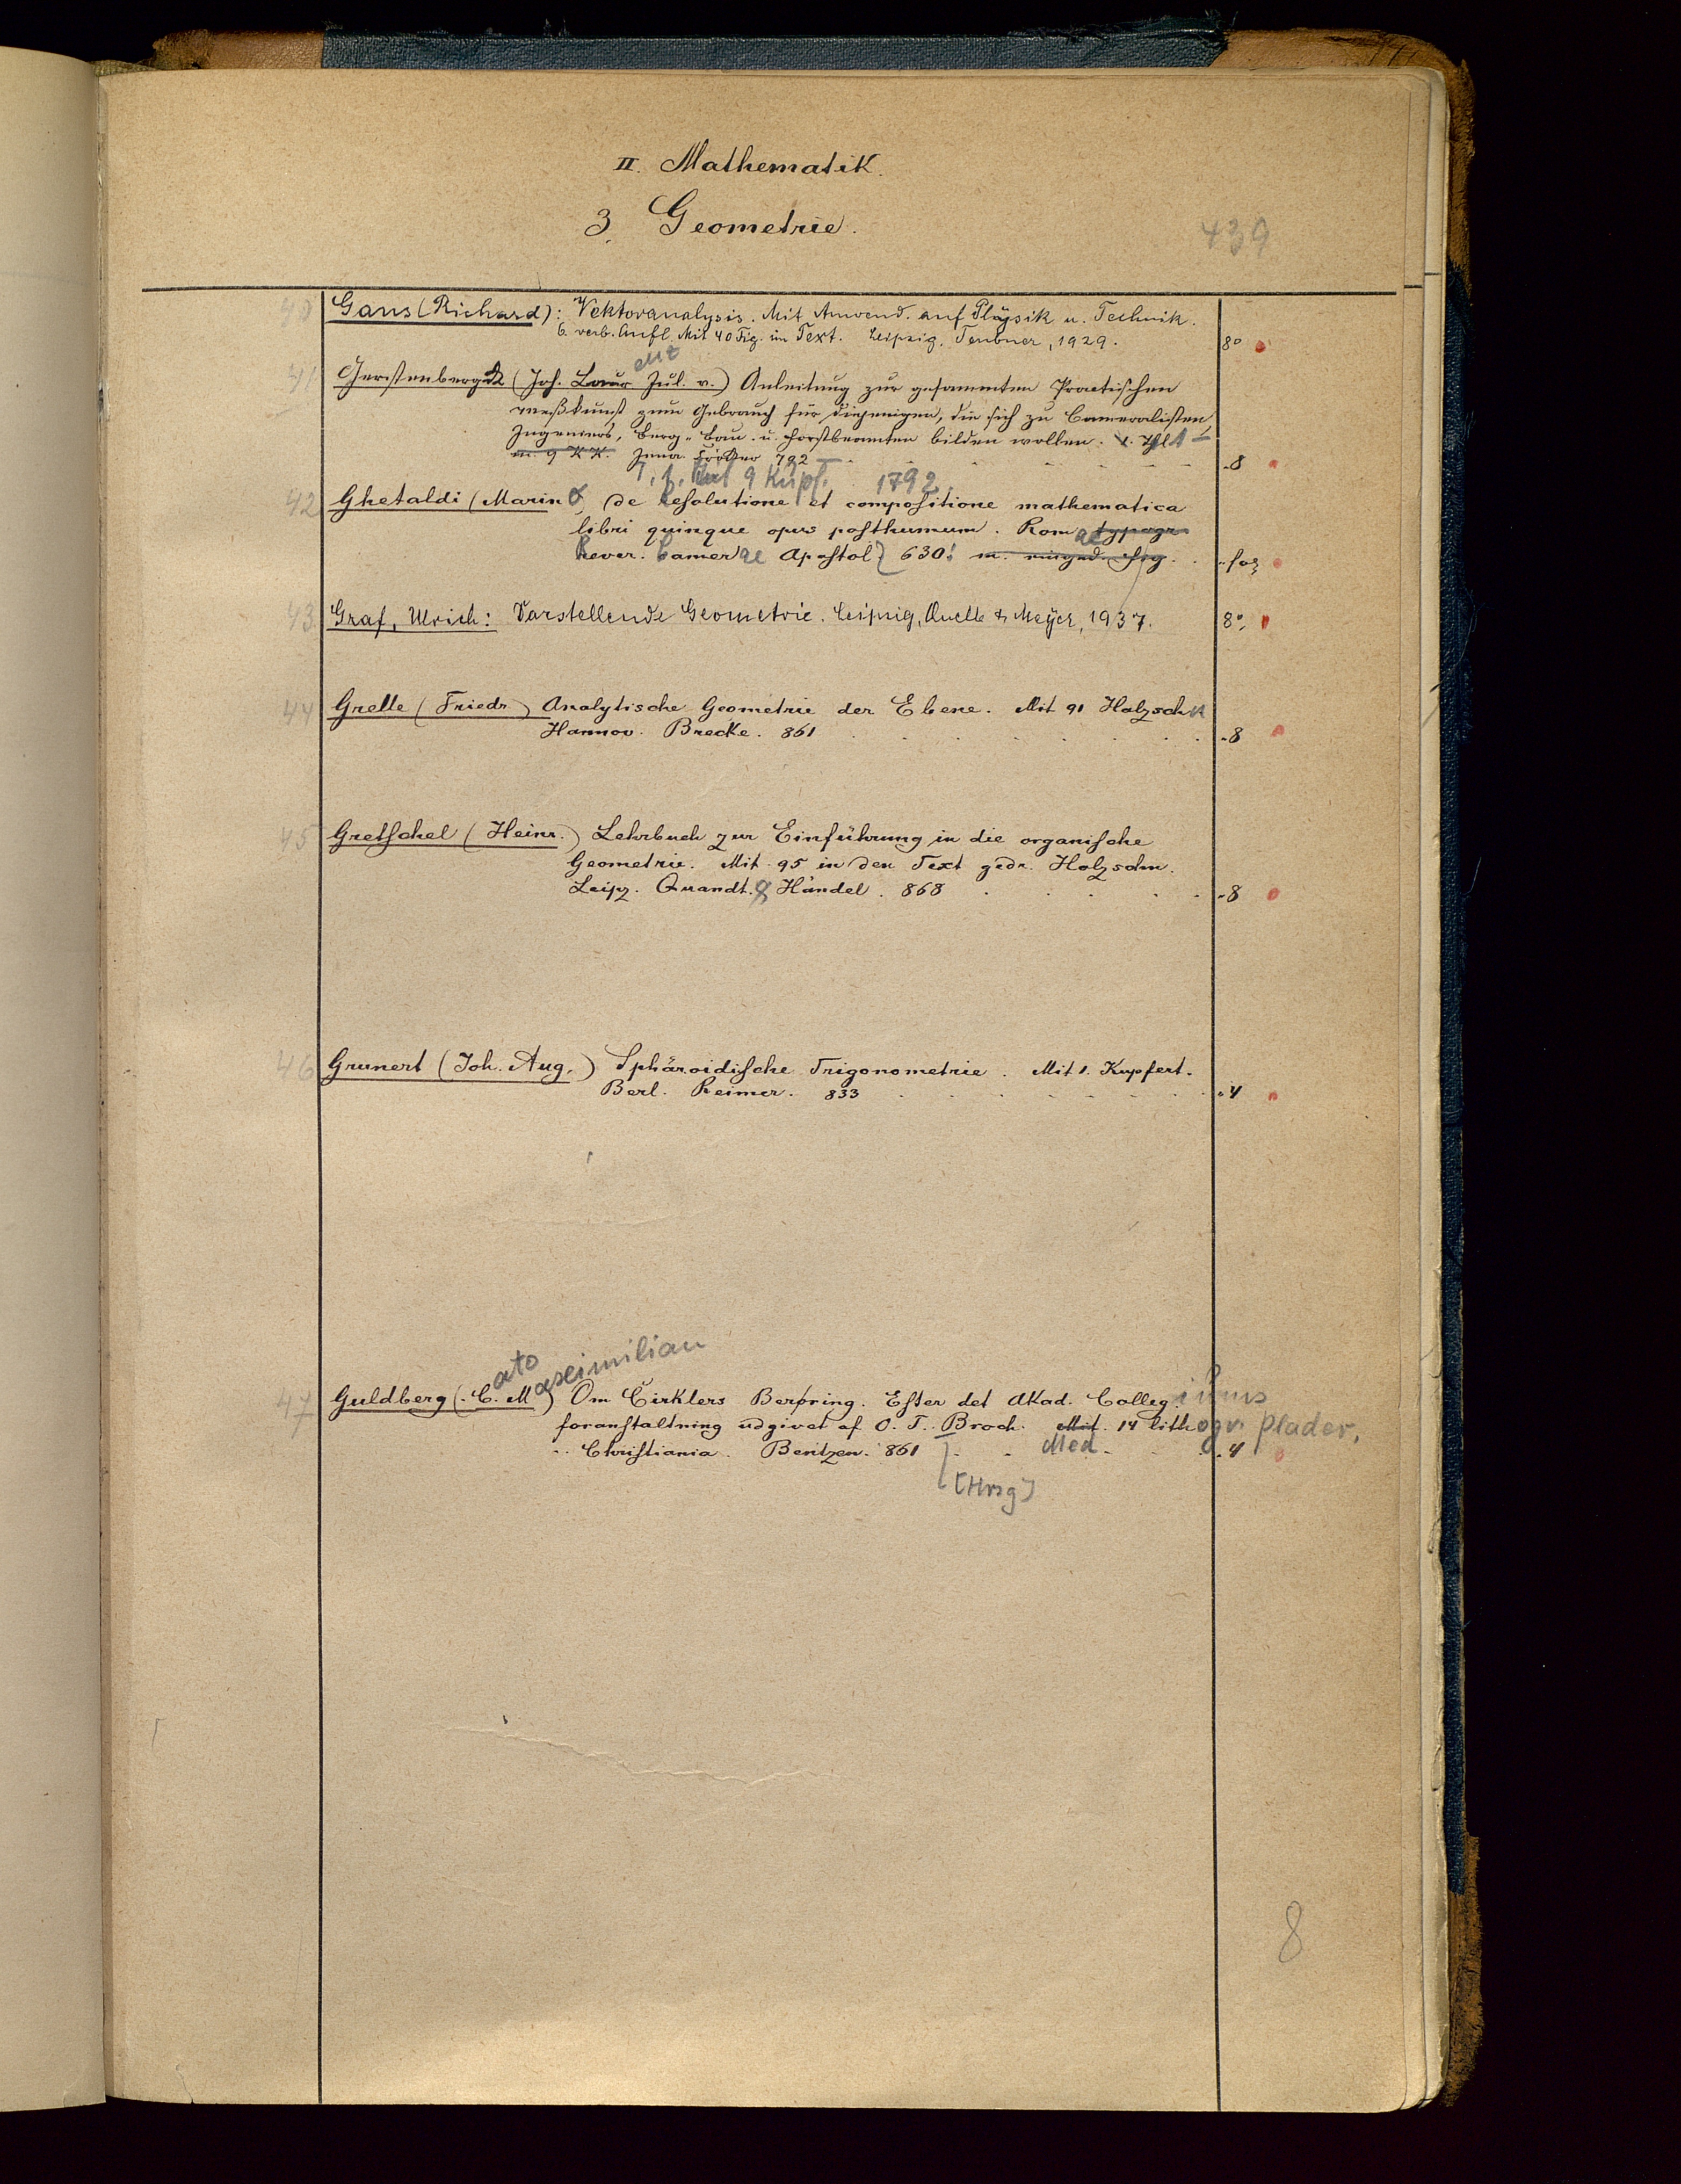 II. Mathematik.
3. Geometrie.
439
40 Gans (Richard): Vektoranalysis. Mit Anwend. auf Physik u. Technik.
6. verb. Aufl. Mit 40 Fig. im Text. Leipzig, Teubner, 1929. 8°
41 Gerstenbergk (Joh. Laur Jul. v.) Anleitung zur gesammten Practischen
ent
meßkunst zum Gebrauch für diejenigen, die sich zu Cameralisten,
Ingenieurs, Berg- Bau- u. Forstbeamten bilden wollen.
m. 9 KK. Jena 792 8
9 Kupf. 1792.
42 Ghetaldi (Marino) de resolutione et compositione mathematica
libri quinque opus posthumum. Romae typogr
Rever. Camerae Apostol 630. m. eingedr. Fig. fol
43 Graf, Ulrich: Darstellende Geometrie. Leipzig, Quelle & Meyer, 1937. 8°
44 Grelle (Friedr) Analytische Geometrie der Ebene. Mit 91 Holzschn
Hannov. Brecke. 861 8
45 Gretschel (Heinr.) Lehrbuch zur Einführung in die organische
Geometrie. Mit 95 in den Text gedr. Holzschn.
Leipz. Quandt. & Händel. 868 8
46 Grunert (Joh. Aug.) Sphäroidische Trigonometrie. Mit 1. Kupfert.
Berl. Reimer. 833 4
ato aximilian
47 Guldberg (C. M) Om Cirklers Berøring. Efter det Akad. Collegiums
foranstaltning udgivet af O. J. Broch. Mit 14 lithogr. Plader.
Christiania. Bentzen. 861 Med 4
[Hrsg]
8